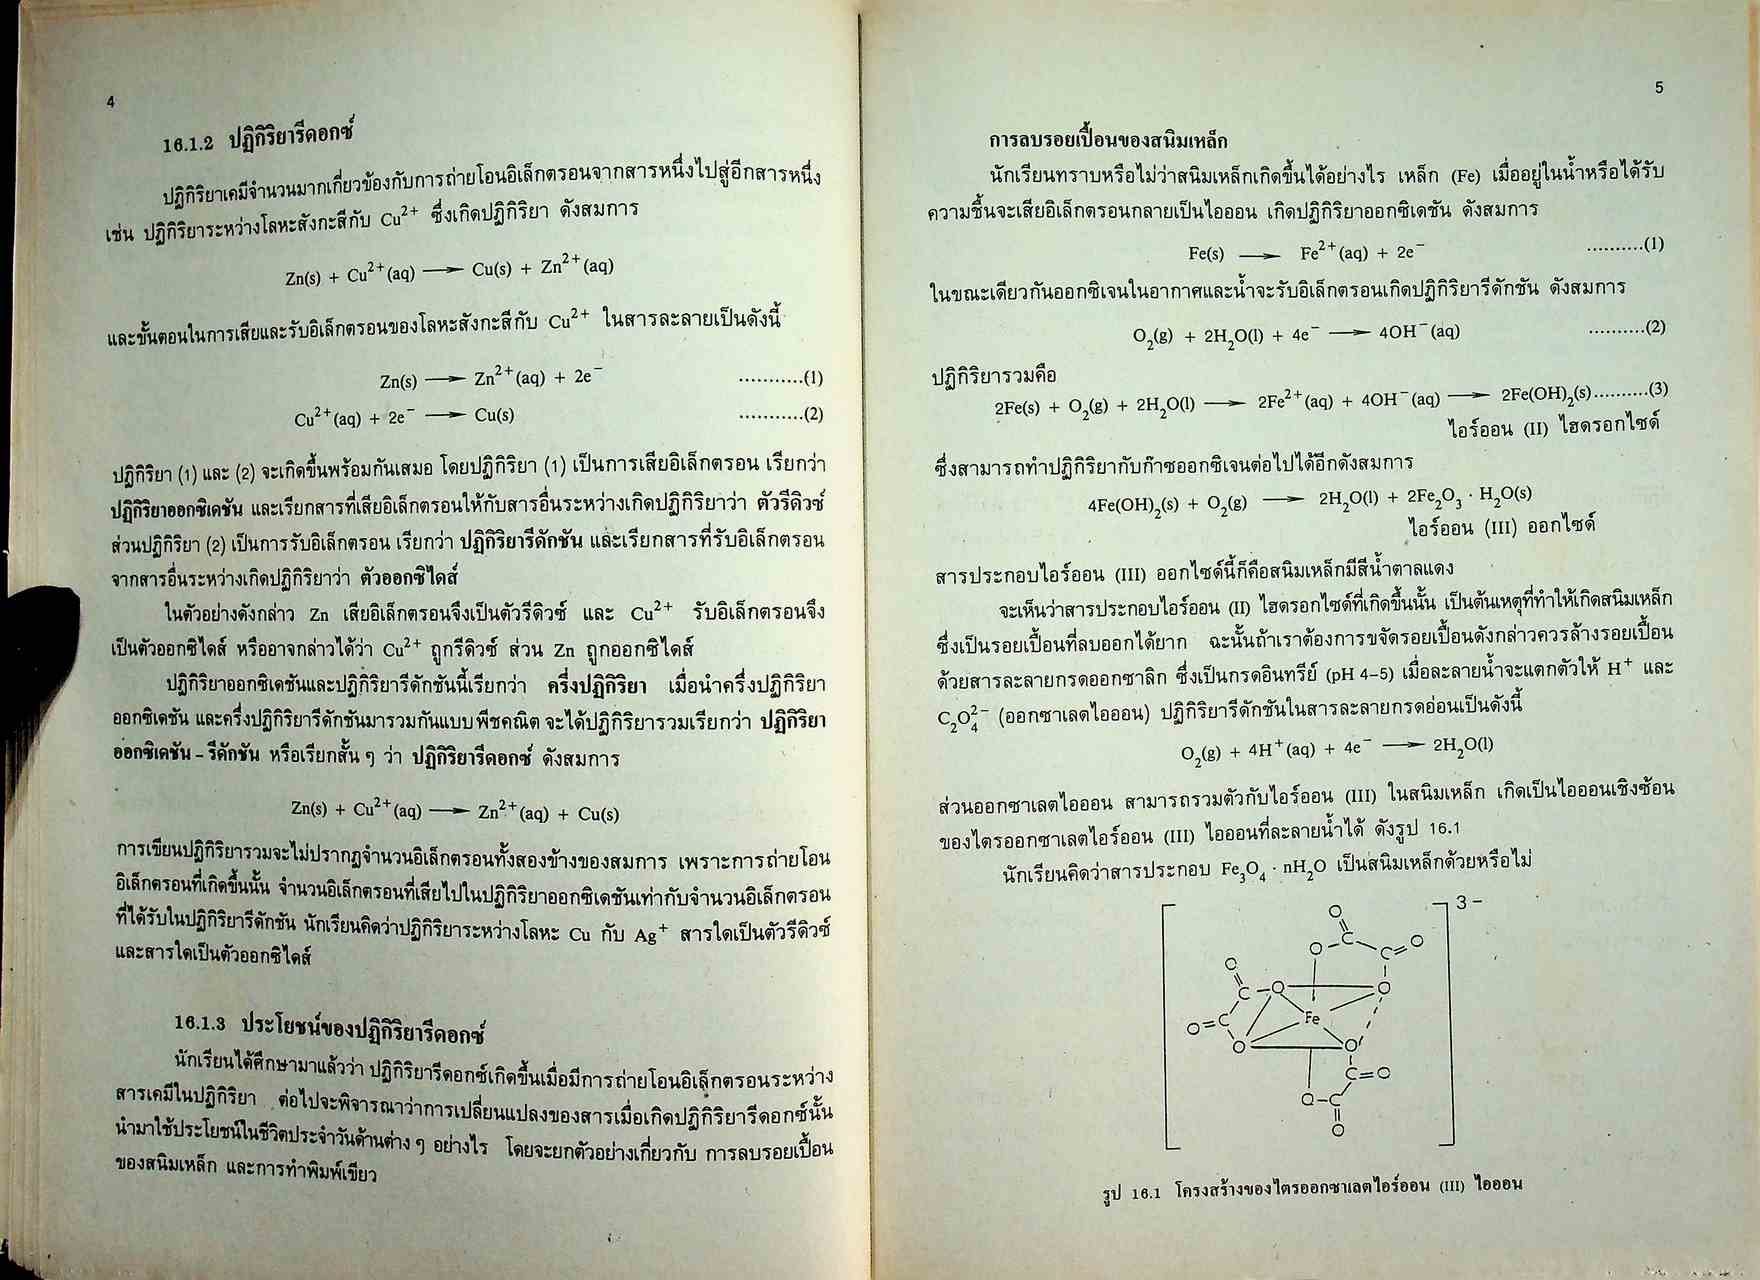 4
16.1.2 ปฏิกิริยารีดอกซ์
ปฏิกิริยาเคมีจำนวนมากเกี่ยวข้องกับการถ่ายโอนอิเล็กตรอนจากสารหนึ่งไปสู่อีกสารหนึ่ง
เช่น ปฏิกิริยาระหว่างโลหะสังกะสีกับ Cu²⁺ ซึ่งเกิดปฏิกิริยา ดังสมการ
Zn(s) + Cu²⁺(aq) ⟶ Cu(s) + Zn²⁺(aq)
และขั้นตอนในการเสียและรับอิเล็กตรอนของโลหะสังกะสีกับ Cu²⁺ ในสารละลายเป็นดังนี้
Zn(s) ⟶ Zn²⁺(aq) + 2e⁻ ...........(1)
Cu²⁺(aq) + 2e⁻ ⟶ Cu(s) ...........(2)
ปฏิกิริยา (1) และ (2) จะเกิดขึ้นพร้อมกันเสมอ โดยปฏิกิริยา (1) เป็นการเสียอิเล็กตรอน เรียกว่า
ปฏิกิริยาออกซิเดชัน และเรียกสารที่เสียอิเล็กตรอนให้กับสารอื่นระหว่างเกิดปฏิกิริยาว่า ตัวรีดิวซ์
ส่วนปฏิกิริยา (2) เป็นการรับอิเล็กตรอน เรียกว่า ปฏิกิริยารีดักชัน และเรียกสารที่รับอิเล็กตรอน
จากสารอื่นระหว่างเกิดปฏิกิริยาว่า ตัวออกซิไดส์
ในตัวอย่างดังกล่าว Zn เสียอิเล็กตรอนจึงเป็นตัวรีดิวซ์ และ Cu²⁺ รับอิเล็กตรอนจึง
เป็นตัวออกซิไดส์ หรืออาจกล่าวได้ว่า Cu²⁺ ถูกรีดิวซ์ ส่วน Zn ถูกออกซิไดส์
ปฏิกิริยาออกซิเดชันและปฏิกิริยารีดักชันนี้เรียกว่า ครึ่งปฏิกิริยา เมื่อนำครึ่งปฏิกิริยา
ออกซิเดชัน และครึ่งปฏิกิริยารีดักชันมารวมกันแบบพีชคณิต จะได้ปฏิกิริยารวมเรียกว่า ปฏิกิริยา
ออกซิเดชัน – รีดักชัน หรือเรียกสั้น ๆ ว่า ปฏิกิริยารีดอกซ์ ดังสมการ
Zn(s) + Cu²⁺(aq) ⟶ Zn²⁺(aq) + Cu(s)
การเขียนปฏิกิริยารวมจะไม่ปรากฏจำนวนอิเล็กตรอนทั้งสองข้างของสมการ เพราะการถ่ายโอน
อิเล็กตรอนที่เกิดขึ้นนั้น จำนวนอิเล็กตรอนที่เสียไปในปฏิกิริยาออกซิเดชันเท่ากับจำนวนอิเล็กตรอน
ที่ได้รับในปฏิกิริยารีดักชัน นักเรียนคิดว่าปฏิกิริยาระหว่างโลหะ Cu กับ Ag⁺ สารใดเป็นตัวรีดิวซ์
และสารใดเป็นตัวออกซิไดส์
16.1.3 ประโยชน์ของปฏิกิริยารีดอกซ์
นักเรียนได้ศึกษามาแล้วว่า ปฏิกิริยารีดอกซ์เกิดขึ้นเมื่อมีการถ่ายโอนอิเล็กตรอนระหว่าง
สารเคมีในปฏิกิริยา ต่อไปจะพิจารณาว่าการเปลี่ยนแปลงของสารเมื่อเกิดปฏิกิริยารีดอกซ์นั้น
นำมาใช้ประโยชน์ในชีวิตประจำวันด้านต่าง ๆ อย่างไร โดยจะยกตัวอย่างเกี่ยวกับ การลบรอยเปื้อน
ของสนิมเหล็ก และการทำพิมพ์เขียว
5
การลบรอยเปื้อนของสนิมเหล็ก
นักเรียนทราบหรือไม่ว่าสนิมเหล็กเกิดขึ้นได้อย่างไร เหล็ก (Fe) เมื่ออยู่ในน้ำหรือได้รับ
ความชื้นจะเสียอิเล็กตรอนกลายเป็นไอออน เกิดปฏิกิริยาออกซิเดชัน ดังสมการ
Fe(s) ⟶ Fe²⁺(aq) + 2e⁻ ..........(1)
ในขณะเดียวกันออกซิเจนในอากาศและน้ำจะรับอิเล็กตรอนเกิดปฏิกิริยารีดักชัน ดังสมการ
O₂(g) + 2H₂O(l) + 4e⁻ ⟶ 4OH⁻(aq) ..........(2)
ปฏิกิริยารวมคือ
2Fe(s) + O₂(g) + 2H₂O(l) ⟶ 2Fe²⁺(aq) + 4OH⁻(aq) ⟶ 2Fe(OH)₂(s)..........(3)
ไอร์ออน (II) ไฮดรอกไซด์
ซึ่งสามารถทำปฏิกิริยากับก๊าซออกซิเจนต่อไปได้อีกดังสมการ
4Fe(OH)₂(s) + O₂(g) ⟶ 2H₂O(l) + 2Fe₂O₃ · H₂O(s)
ไอร์ออน (III) ออกไซด์
สารประกอบไอร์ออน (III) ออกไซด์นี้ก็คือสนิมเหล็กมีสีน้ำตาลแดง
จะเห็นว่าสารประกอบไอร์ออน (II) ไฮดรอกไซด์ที่เกิดขึ้นนั้น เป็นต้นเหตุที่ทำให้เกิดสนิมเหล็ก
ซึ่งเป็นรอยเปื้อนที่ลบออกได้ยาก ฉะนั้นถ้าเราต้องการขจัดรอยเปื้อนดังกล่าวควรล้างรอยเปื้อน
ด้วยสารละลายกรดออกซาลิก ซึ่งเป็นกรดอินทรีย์ (pH 4–5) เมื่อละลายน้ำจะแตกตัวให้ H⁺ และ
C₂O₄²⁻ (ออกซาเลตไอออน) ปฏิกิริยารีดักชันในสารละลายกรดอ่อนเป็นดังนี้
O₂(g) + 4H⁺(aq) + 4e⁻ ⟶ 2H₂O(l)
ส่วนออกซาเลตไอออน สามารถรวมตัวกับไอร์ออน (III) ในสนิมเหล็ก เกิดเป็นไอออนเชิงซ้อน
ของไตรออกซาเลตไอร์ออน (III) ไอออนที่ละลายน้ำได้ ดังรูป 16.1
นักเรียนคิดว่าสารประกอบ Fe₃O₄ · nH₂O เป็นสนิมเหล็กด้วยหรือไม่
3 –
O
O – C
C = O
O
C – O
O
O = C
Fe
O
O
C = O
O – C
O
รูป 16.1 โครงสร้างของไตรออกซาเลตไอร์ออน (III) ไอออน